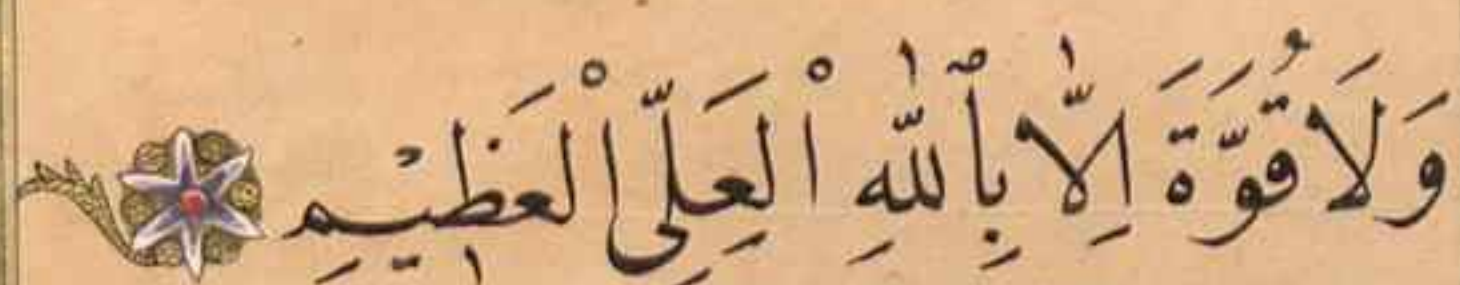 وَلَا قُوَّةَ اِلَّا بِٱللّٰهِ الْعَلِىِّ الْعَظ۪يمِ